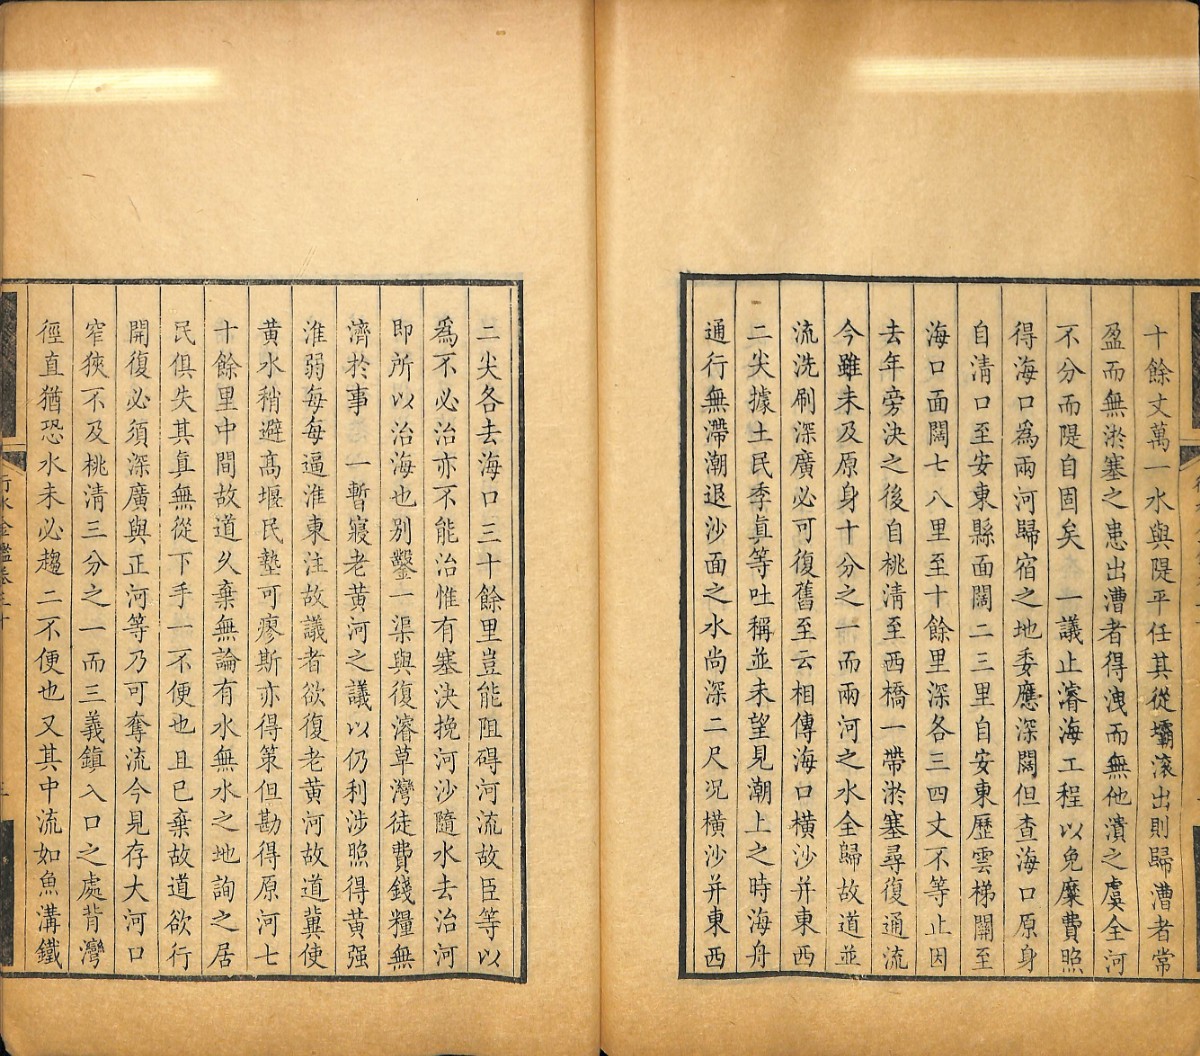 十餘丈萬一水與隄平任其從壩滾出則歸漕者常
盈而無淤塞之患出漕者得洩而無他潰之虞全河
不分而隄自固矣　一議止濬海工程以免糜費照
得海口為兩河歸宿之地委應深闊但查海口原身
自清口至安東縣面闊二三里自安東歷雲梯關至
海口面闊七八里至十餘里深各三四丈不等止因
去年旁決之後自桃清至西橋一帶淤塞尋復通流
今雖未及原身十分之一而兩河之水全歸故道並
流洗刷深廣必可復舊至云相傳海口橫沙并東西
二尖據土民季真等吐稱並未望見潮上之時海舟
通行無滯潮退沙面之水尚深二尺況橫沙并東西
二尖各去海口三十餘里豈能阻碍河流故臣等以
為不必治亦不能治惟有塞決挽河沙隨水去治河
即所以治海也別鑿一渠與復濬草灣徒費錢糧無
濟於事　一暫寢老黃河之議以仍利涉照得黃强
淮弱每每逼淮東注故議者欲復老黃河故道冀使
黃水稍避高堰民墊可瘳斯亦得策但勘得原河七
十餘里中間故道久棄無論有水無水之地詢之居
民俱失其真無從下手一不便也且已棄故道欲行
開復必須深廣與正河等乃可奪流今見存大河口
窄狹不及桃清三分之一而三義鎮入口之處背灣
徑直猶恐水未必趨二不便也又其中流如魚溝鐵
行水金鑑卷三十